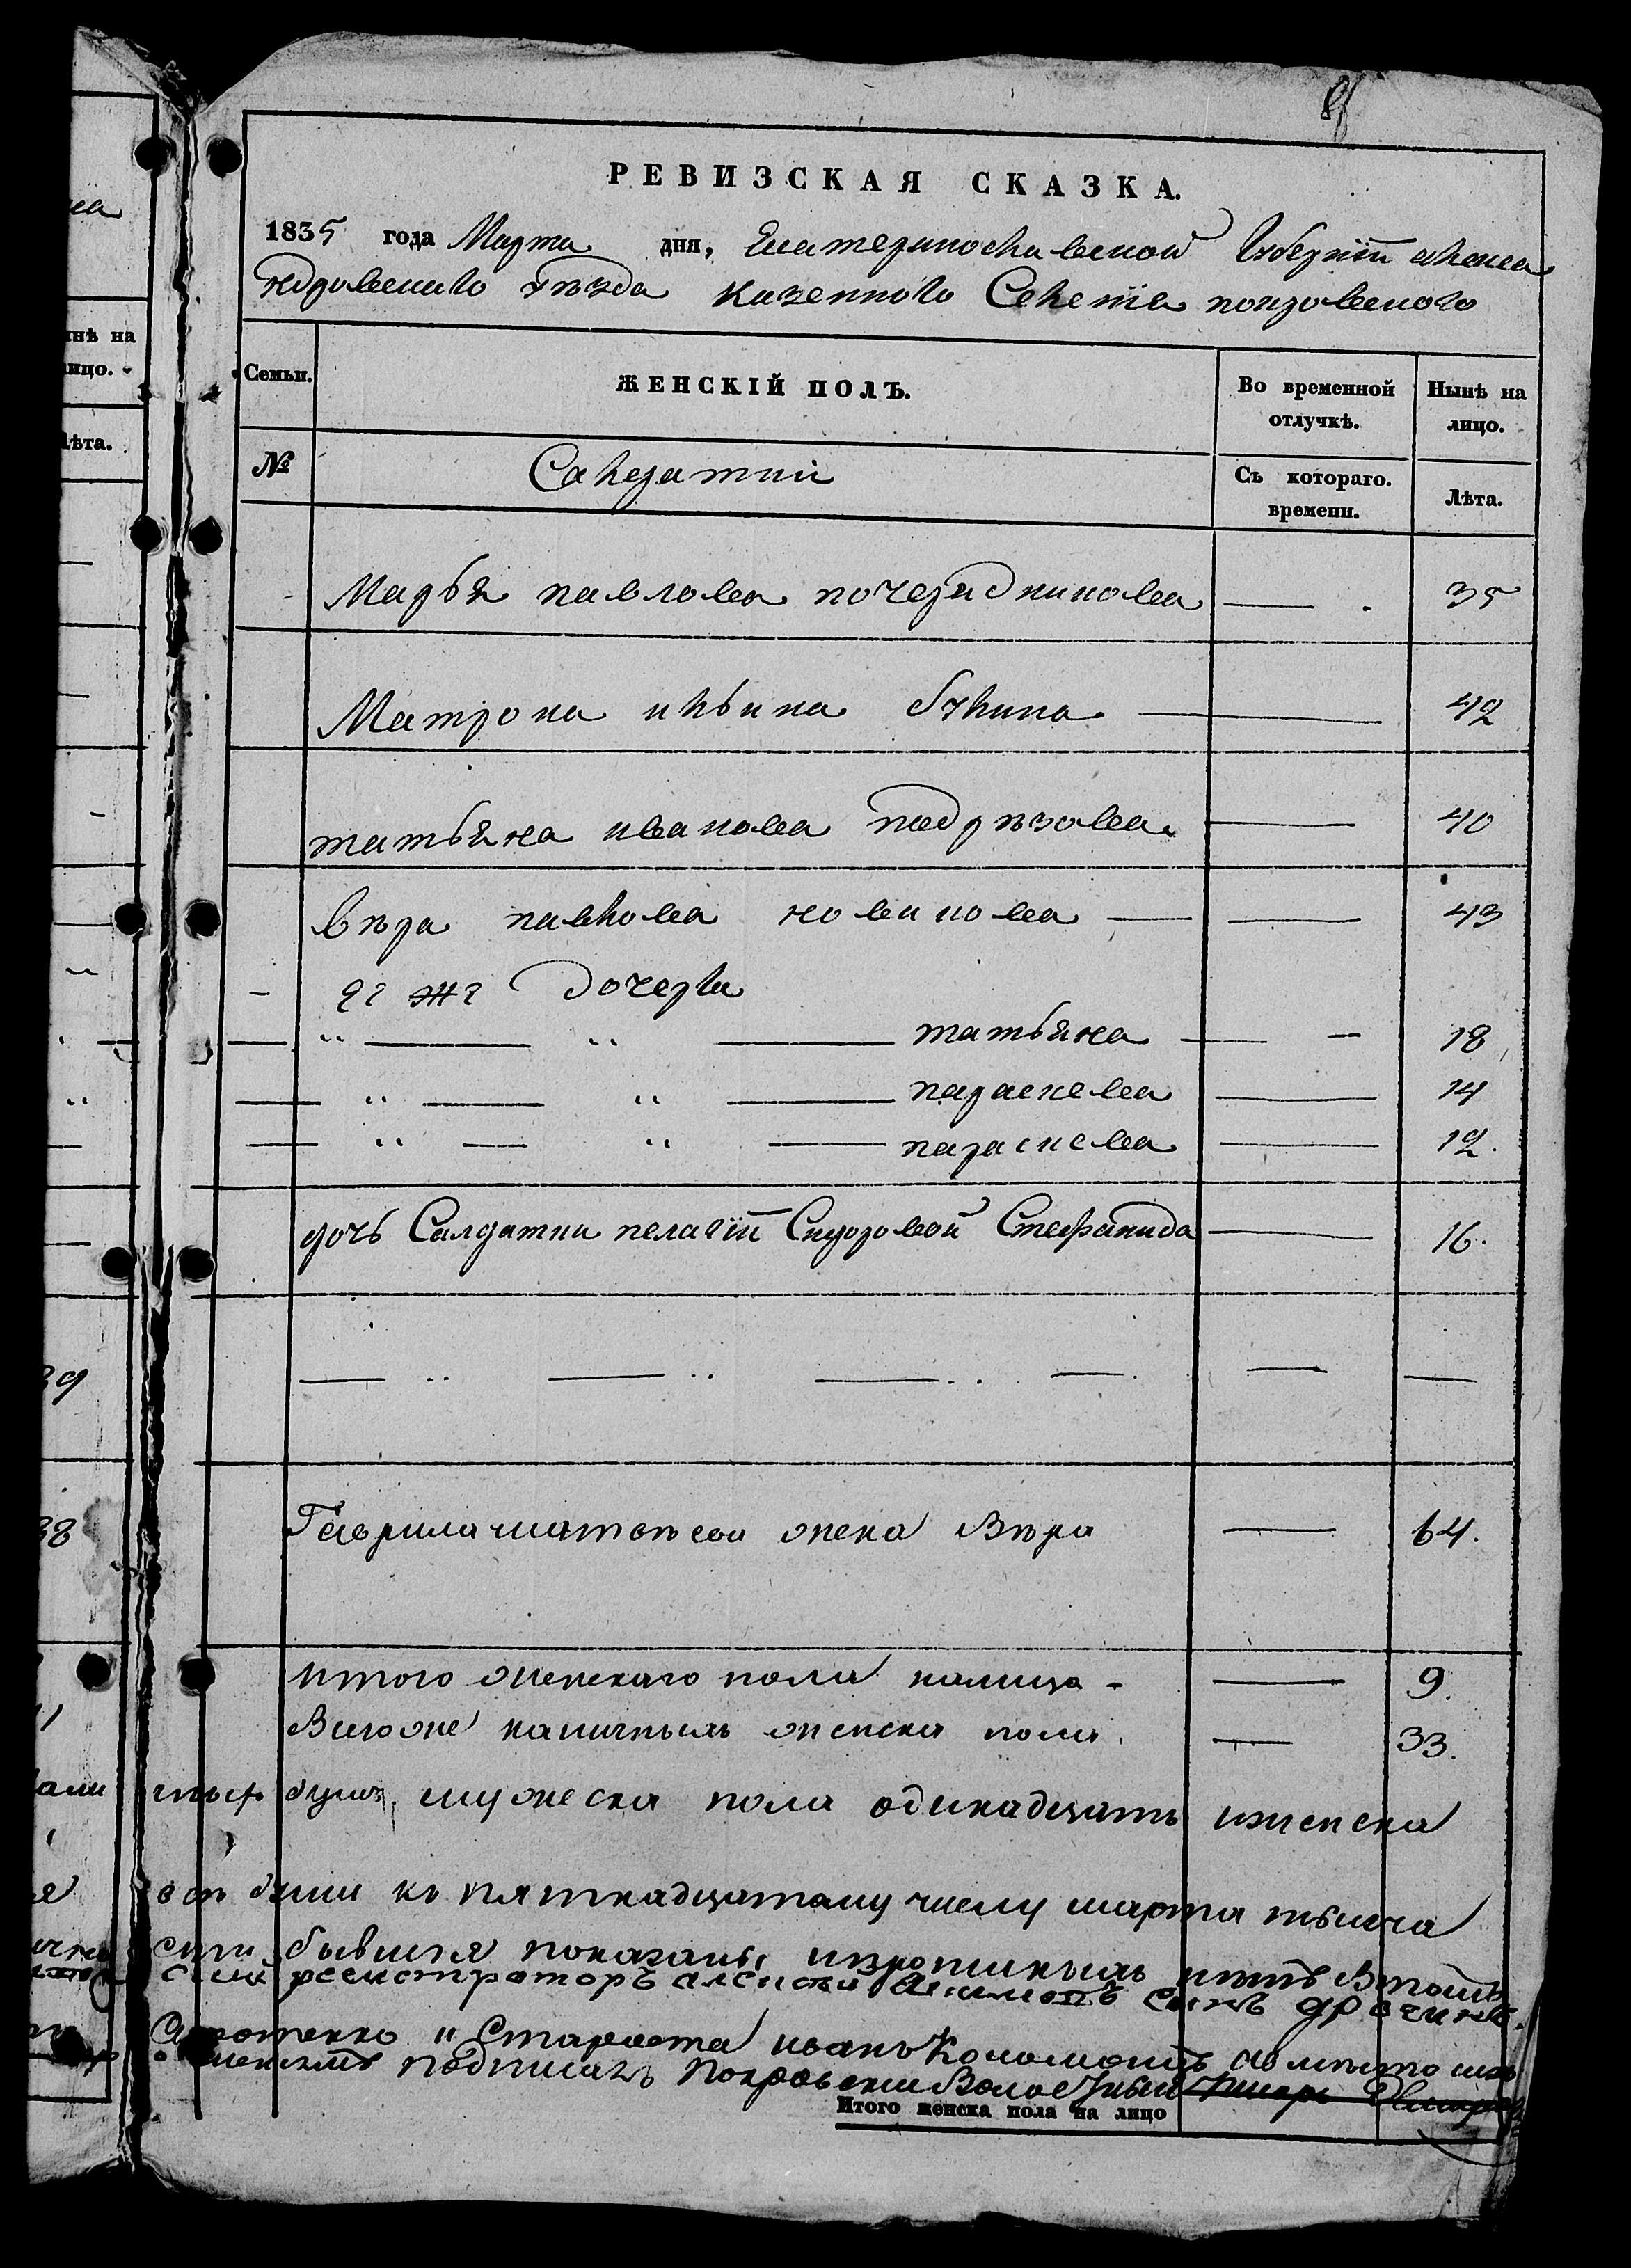 РЕВИЗСКАЯ СКАЗКА.
1835 года Марта дня, Екатеринославской Губернїи Алекса
ндровскаго уѣзда казеннаго Селенїя покровскаго
Семьи. ЖЕНСКІЙ ПОЛЪ. Во временной отлучкѣ. Нынѣ на лицо.
№ Салдатки Съ котораго. времени. Лѣта.
Марья павлова почередникова — 35
Матрона ильина — 42
татьяна иванова подрѣзова — 40
вѣра павлова новикова — 43
ее же дочери
" " татьяна — 18
" " параскева — 14
" " параскева — 12.
дочь Салдатки пелагїи Сидоровой Стефанида — 16.
Гаврила матвѣева жена Вѣра — 64.
итого женскаго пола налицо — 9.
Всего же наличныхъ женска пола — 33.
душъ мужеска пола одинадцать иженска
были къ пятнадцатому числу марта тысяча
бывшiя показаны
регистраторъ сынъ
Староста иванъ Коломоецъ
подписалъ Покровскии Волостныи Писарь
Итого женска пола на лицо
инѣ на
лицо.
Лѣта.
39
38